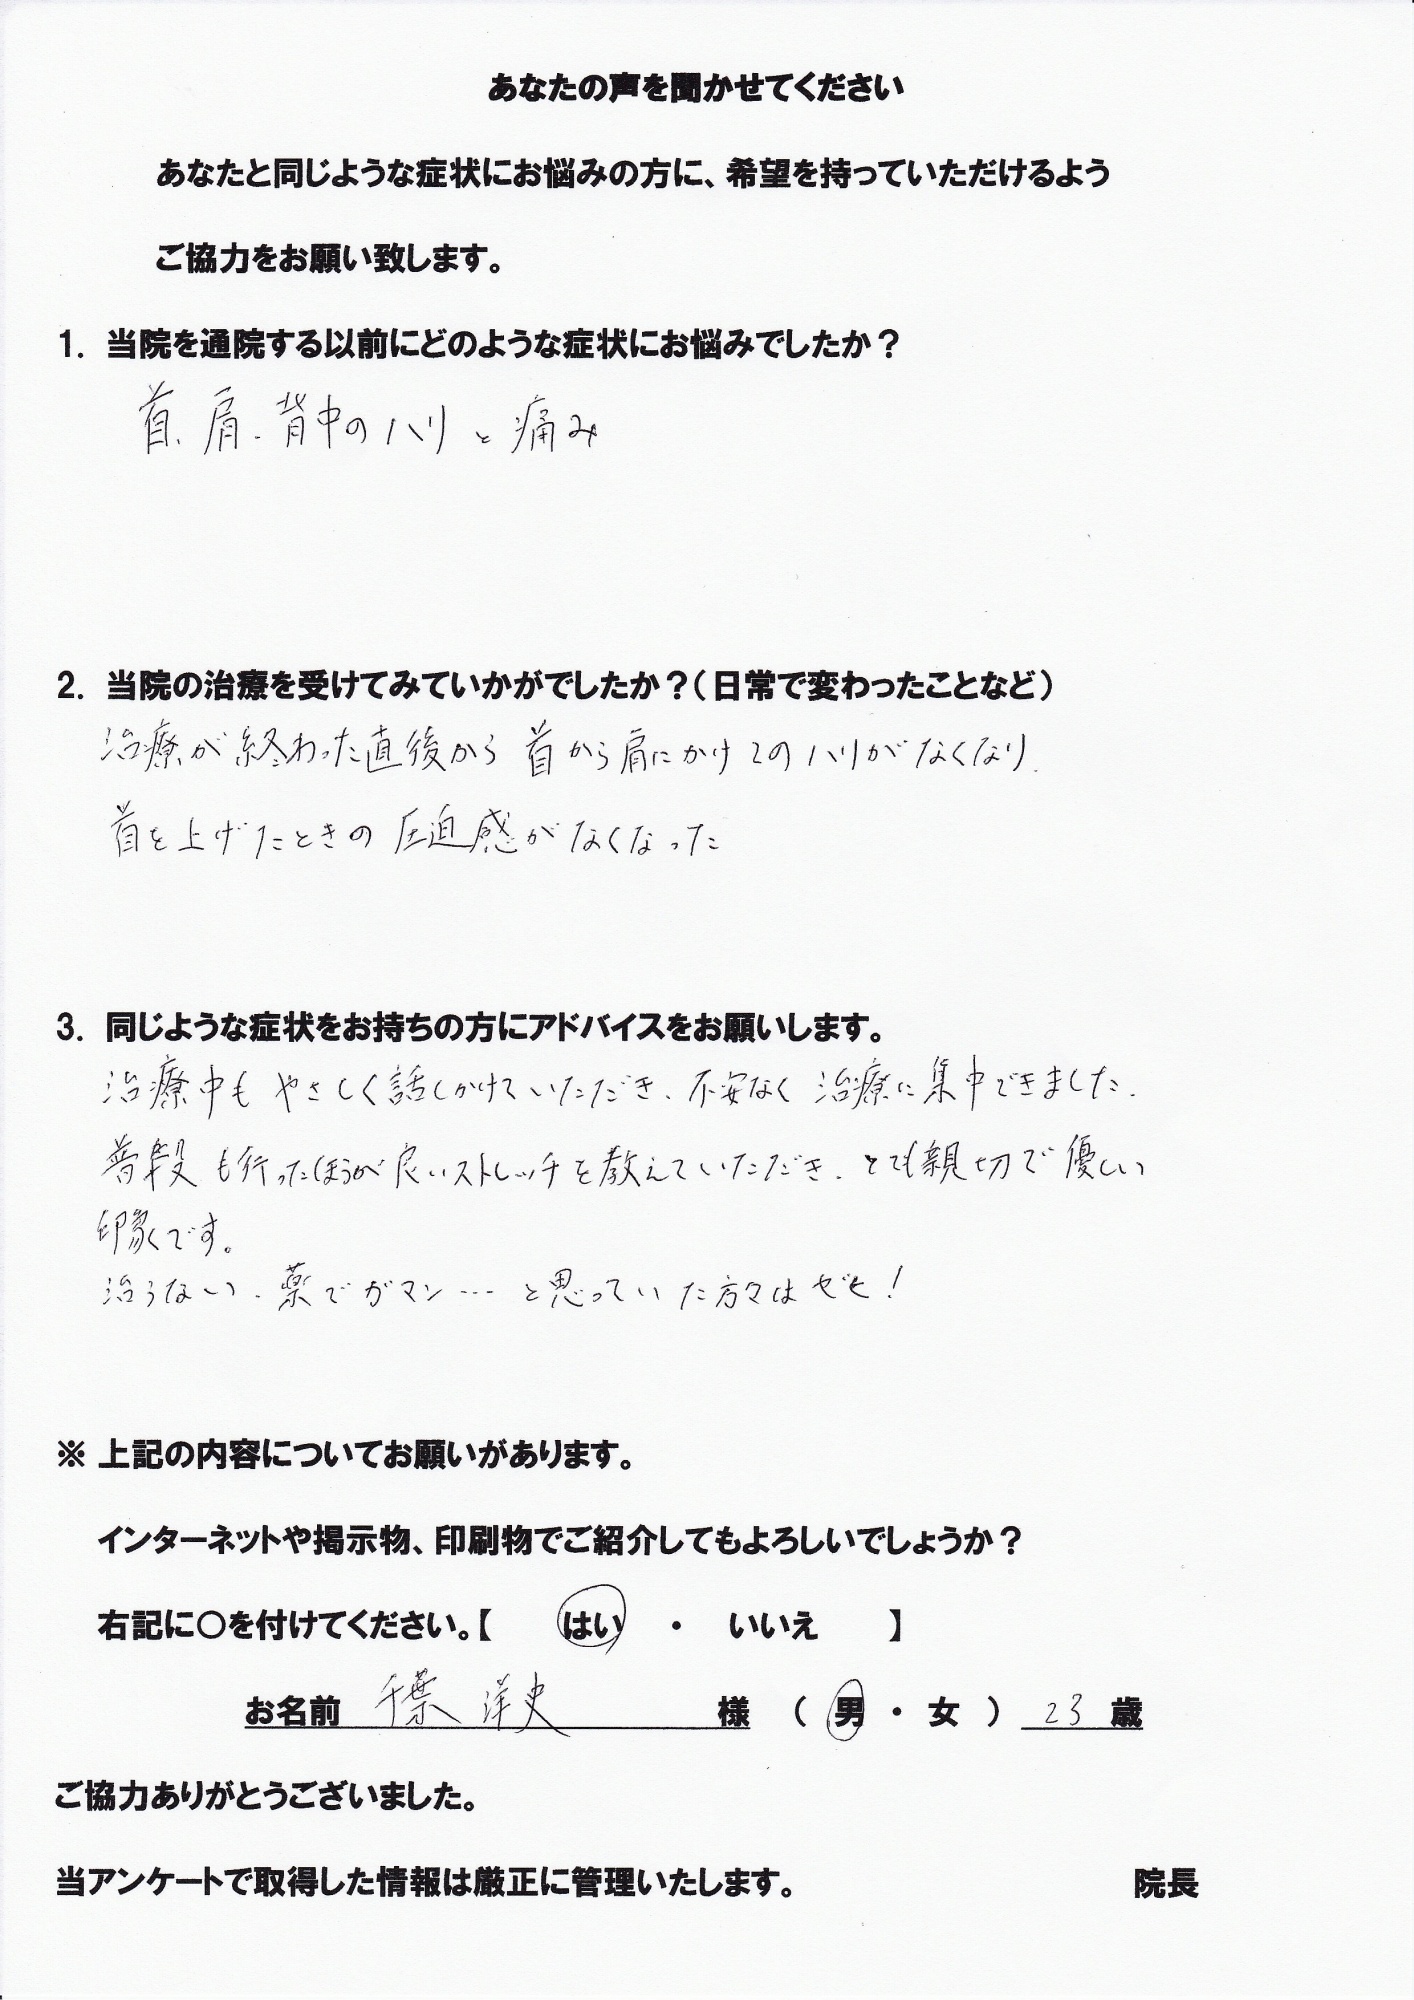 あなたの声を聞かせてください
あなたと同じような症状にお悩みの方に、希望を持っていただけるよう
ご協力をお願い致します。
1. 当院を通院する以前にどのような症状にお悩みでしたか？
首、肩、背中のハリと痛み
2. 当院の治療を受けてみていかがでしたか？（日常で変わったことなど）
治療が終わった直後から 首から肩にかけてのハリがなくなり、
首を上げたときの圧迫感がなくなった
3. 同じような症状をお持ちの方にアドバイスをお願いします。
治療中も やさしく話しかけていただき、不安なく 治療に集中できました。
普段も行ったほうが良いストレッチを教えていただき、とても親切で優しい
印象です。
治らない、薬でガマン…と思っていた方々はぜひ！
※ 上記の内容についてお願いがあります。
インターネットや掲示物、印刷物でご紹介してもよろしいでしょうか？
右記に○を付けてください。【 はい ・ いいえ 】
お名前 千葉 洋史 様 （ 男 ・ 女 ） 23 歳
ご協力ありがとうございました。
当アンケートで取得した情報は厳正に管理いたします。 院長